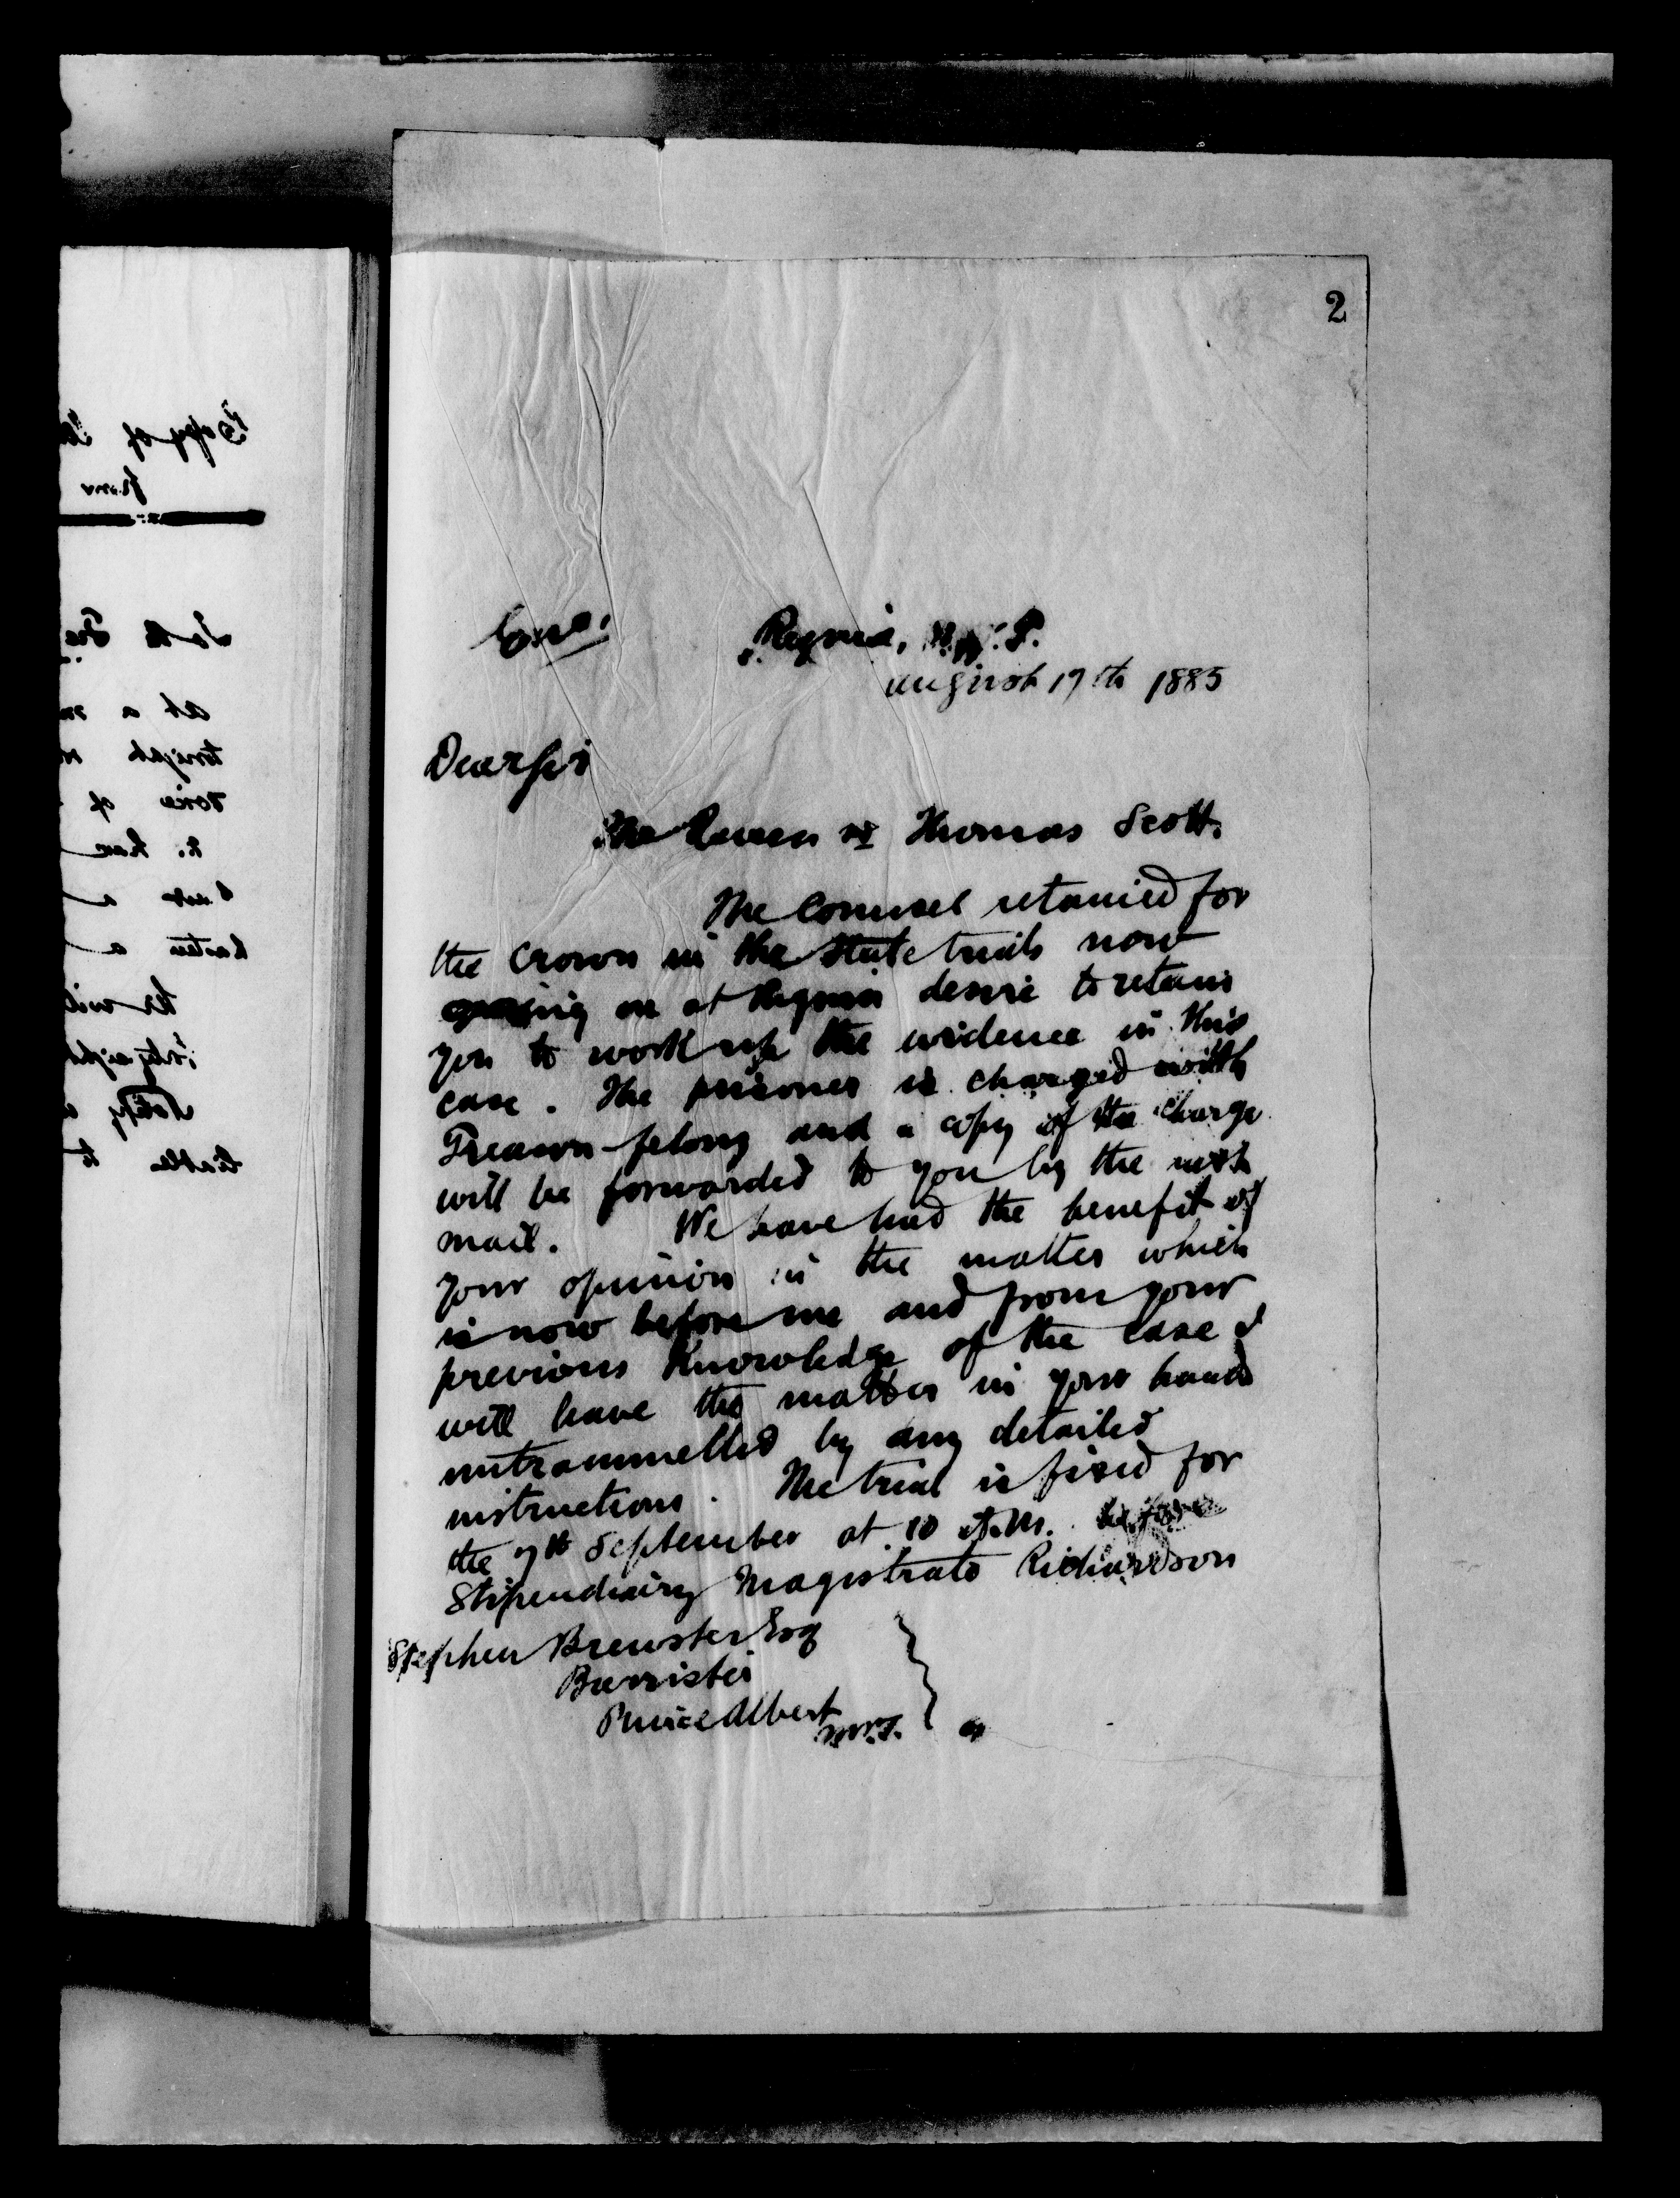 2
Regina, N.W.T.
August 17th 1885
Dear Sir
The Queen vs Thomas Scott.
The Counsel retained for
the Crown in the State trials now
going on at Regina desire to retain
you to work up the evidence in this
case. The prisoner is charged with
Treason-felony and a copy of the charge
will be forwarded to you by the next
mail. We have had the benefit of
your opinion in the matter which
is now before me and from your
previous Knowledge of the case I
will leave the matter in your hands
untrammelled by any detailed
instructions. The trial is fixed for
the 7th September at 10 A.M. before
Stipendiary Magistrate Richardson
Stephen Brewster Esq
Barrister
Prince Albert
N.W.T.